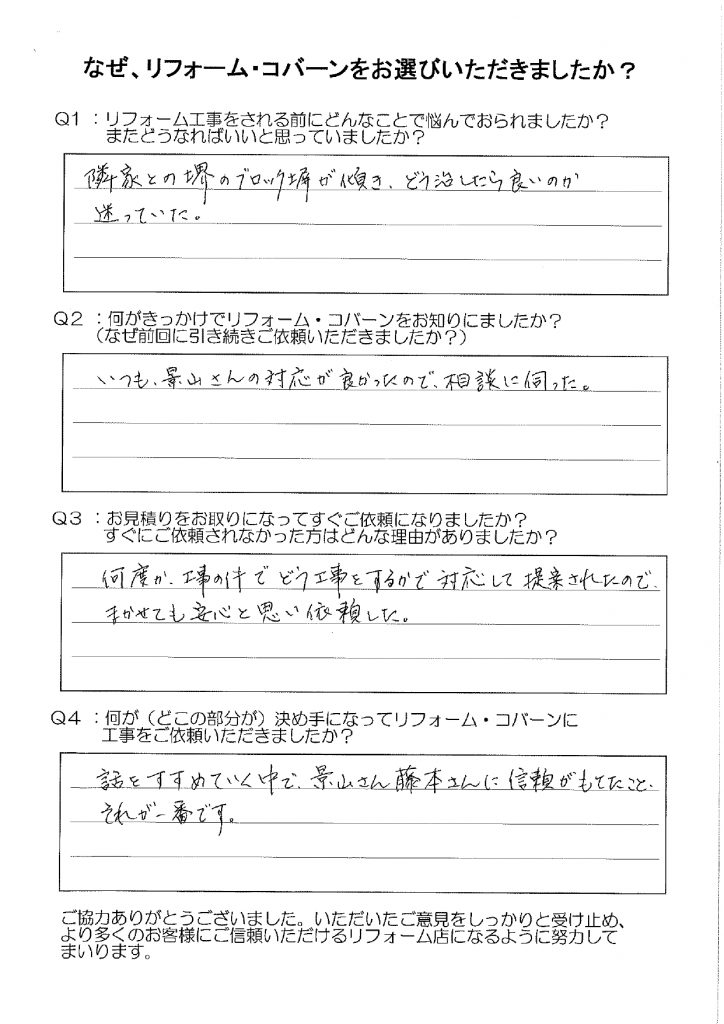 なぜ、リフォーム・コバーンをお選びいただきましたか？
Q1：リフォーム工事をされる前にどんなことで悩んでおられましたか？
またどうなればいいと思っていましたか？
隣家との堺のブロック塀が傾き、どう治したら良いのか
迷っていた。
Q2：何がきっかけでリフォーム・コバーンをお知りにましたか？
（なぜ前回に引き続きご依頼いただきましたか？）
いつも、景山さんの対応が良かったので、相談に伺った。
Q3：お見積りをお取りになってすぐご依頼になりましたか？
すぐにご依頼されなかった方はどんな理由がありましたか？
何度か、工事の件でどう工事をするかで対応して提案されたので、
まかせても安心と思い依頼した。
Q4：何が（どこの部分が）決め手になってリフォーム・コバーンに
工事をご依頼いただきましたか？
話をすすめていく中で、景山さん藤本さんに信頼がもてたこと、
それが一番です。
ご協力ありがとうございました。いただいたご意見をしっかりと受け止め、
より多くのお客様にご信頼いただけるリフォーム店になるように努力して
まいります。